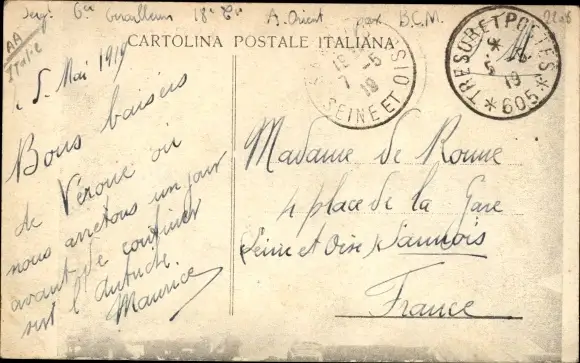 A. Orient par B.C.M.
AA
Italie
CARTOLINA POSTALE ITALIANA
5 Mai 1919
Bons baisers
de Vérone où
nous arrêtons un jour
avant de continuer
vers l'Autriche.
Maurice
TRESOR ET POSTES
5
19
* 605 *
7 -5
19
SEINE ET O
Madame de Rome
4 place de la Gare
Seine et Oise Sannois
France